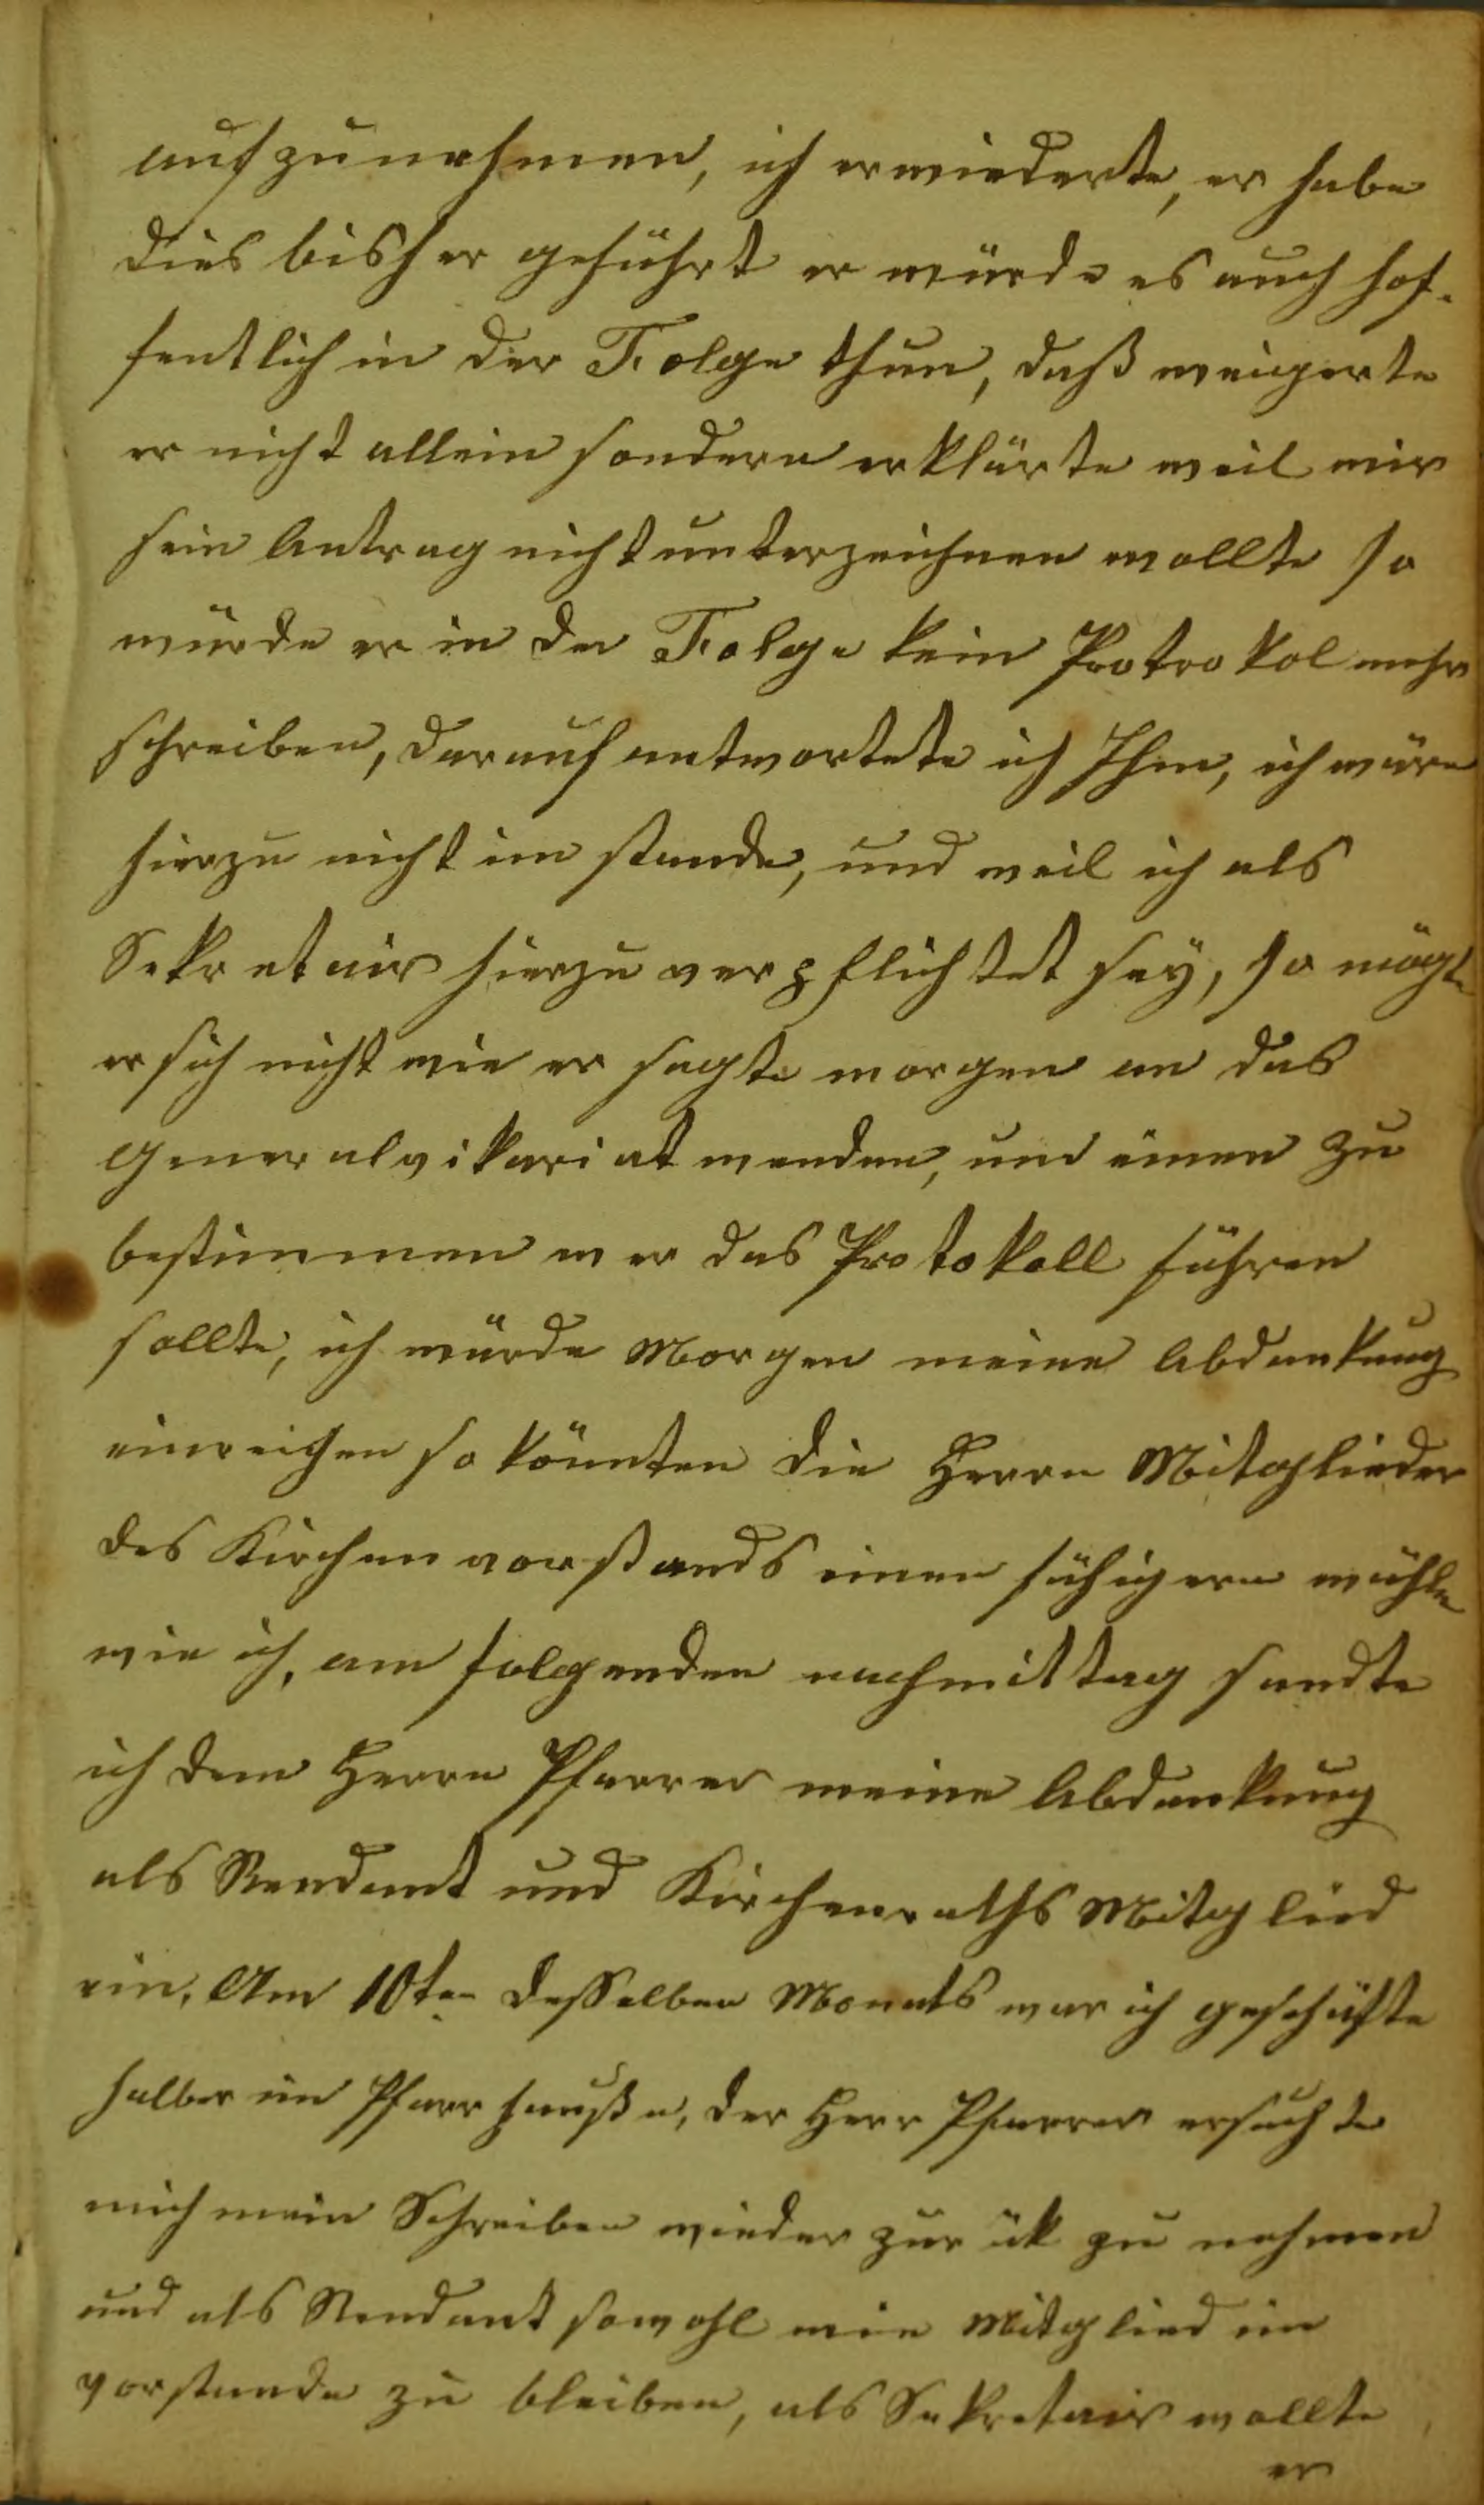 aufzunehmen, ich erwiederte, er habe
dies bisher geführt er würde es auch hof-
fentlich in der Folge thun, daß weigerte
er nicht allein sondern erklärte weil wir
sein Antrag nicht unterzeichnen wollte so
würde er in der Folge kein Protrokol mehr
schreiben, darauf antwortete ich Ihm, ich wäre
hierzu nicht im stande, und weil ich als
Sekretair hierzu verpflichtet sey, so mögte
er sich nicht wie er sagte morgen an das
Generalvikariat wenden, um einen zu
bestimmen wer das Protokoll führen
sollte, ich würde Morgen meine Abdankung
einreichen so könnten die Herrn Mitglieder
des Kirchenvorstands einen fähigern wähle
wie ich, am folgenden nachmittag sandte
ich dem Herrn Pfarrer meine Abdankung
als Rendant und Kirchenraths Mitglied
ein, Am 10ten desselben Monats war ich geschäfte
halber im Pfarrhauße, der Herr Pfarrer ersuchte
mich mein Schreiben wieder zurük zu nehmen
und als Rendant sowohl wie Mitglied im
vorstande zu bleiben, als Sekretair wollte
er